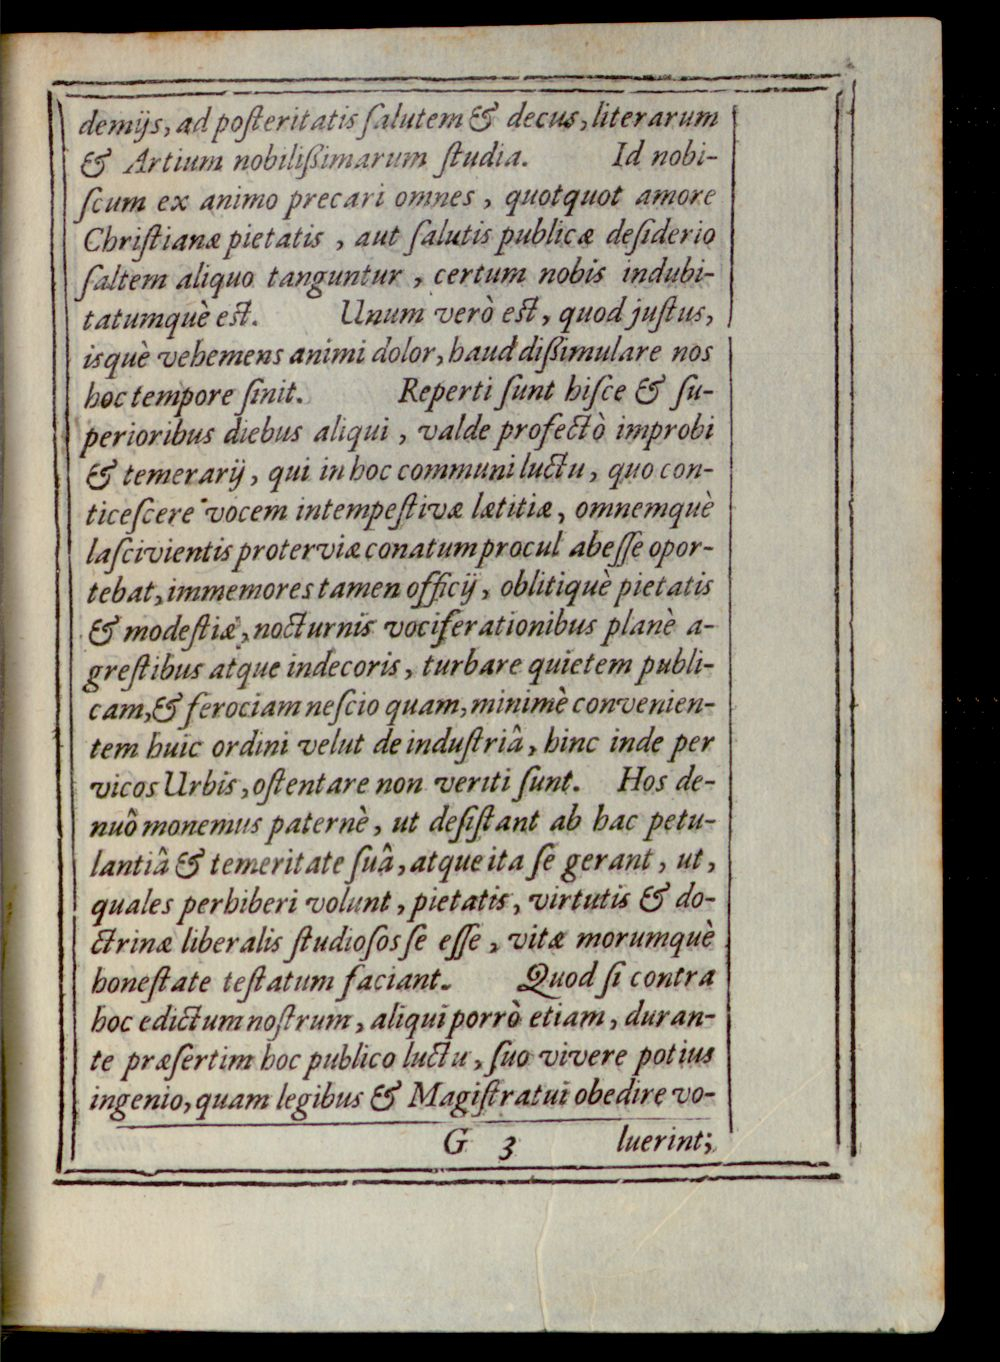 demijs, ad poſteritatis ſalutem & decus, literarum
& Artium nobilißimarum ſtudia. Id nobi-
ſcum ex animo precari omnes, quotquot amore
Chriſtianæ pietatis, aut ſalutis publicæ deſiderio
ſaltem aliquo tanguntur, certum nobis indubi-
tatumquè eſt. Unum verò eſt, quod juſtus,
isquè vehemens animi dolor, haud dißimulare nos
hoc tempore ſinit. Reperti ſunt hiſce & ſu-
perioribus diebus aliqui, valde profectò improbi
& temerarij, qui in hoc communi luctu, quo con-
ticeſcere vocem intempeſtivæ lætitiæ, omnemquè
laſcivientis proterviæ conatum procul abeſſe opor-
tebat, immemores tamen officij, oblitiquè pietatis
& modeſtiæ, nocturnis vociferationibus planè a-
greſtibus atque indecoris, turbare quietem publi-
cam, & ferociam neſcio quam, minimè convenien-
tem huic ordini velut de induſtriâ, hinc inde per
vicos Urbis, oſtentare non veriti ſunt. Hos de-
nuô monemus paternè, ut deſiſtant ab hac petu-
lantiâ & temeritate ſuâ, atque ita ſe gerant, ut,
quales perhiberi volunt, pietatis, virtutis & do-
ctrinæ liberalis ſtudioſos ſe eſſe, vitæ morumquè
honeſtate teſtatum faciant. Quod ſi contra
hoc edictum noſtrum, aliqui porrò etiam, duran-
te præſertim hoc publico luctu, ſuo vivere potius
ingenio, quam legibus & Magiſtratui obedire vo-
G 3 luerint;